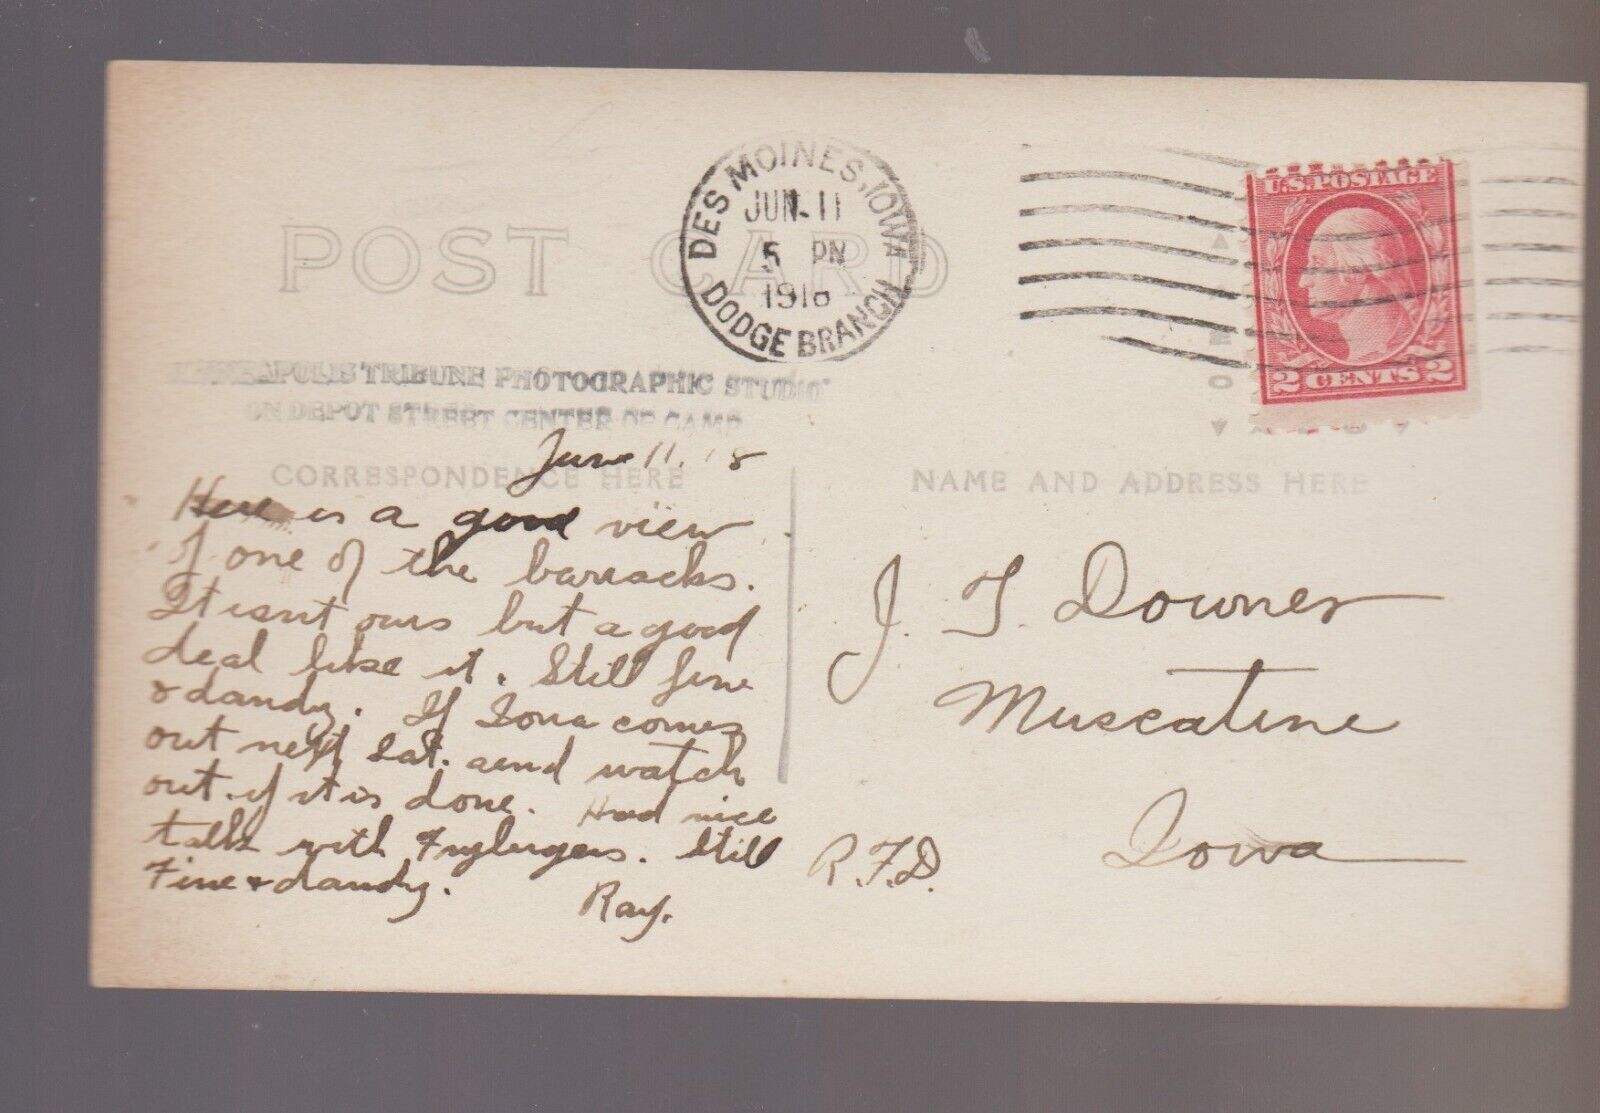 POST CARD
DES MOINES, IOWA
JUN 11
5 PM
1918
DODGE BRANCH
U.S. POSTAGE
2 CENTS 2
TRIBUNE PHOTOGRAPHIC STUDIO
ON DEPOT STREET CENTER OF CAMP
June 11, 18
CORRESPONDENCE HERE
Here is a good view
of one of the barracks.
It isnt ours but a good
deal like it. Still fine
& dandy. If Iowa comes
out next Sat. and watch
out if it is done. Had nice
talk with Still
Fine & dandy.
Ray.
NAME AND ADDRESS HERE
J. T. Downer
Muscatine
Iowa
R.F.D.